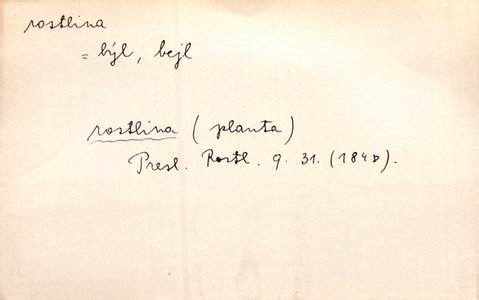 rostlina
= býl, bejl
rostlina (planta)
Presl. Rostl. 9. 31. (184